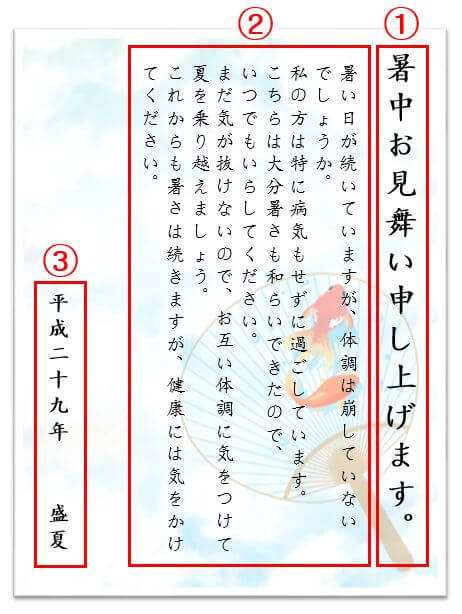 ①
暑中お見舞い申し上げます。
②
暑い日が続いていますが、体調は崩していない
でしょうか。
私の方は特に病気もせずに過ごしています。
こちらは大分暑さも和らいできたので、
いつでもいらしてください。
まだ気が抜けないので、お互い体調に気をつけて
夏を乗り越えましょう。
これからも暑さは続きますが、健康には気をかけ
てください。
③
平成二十九年　盛夏